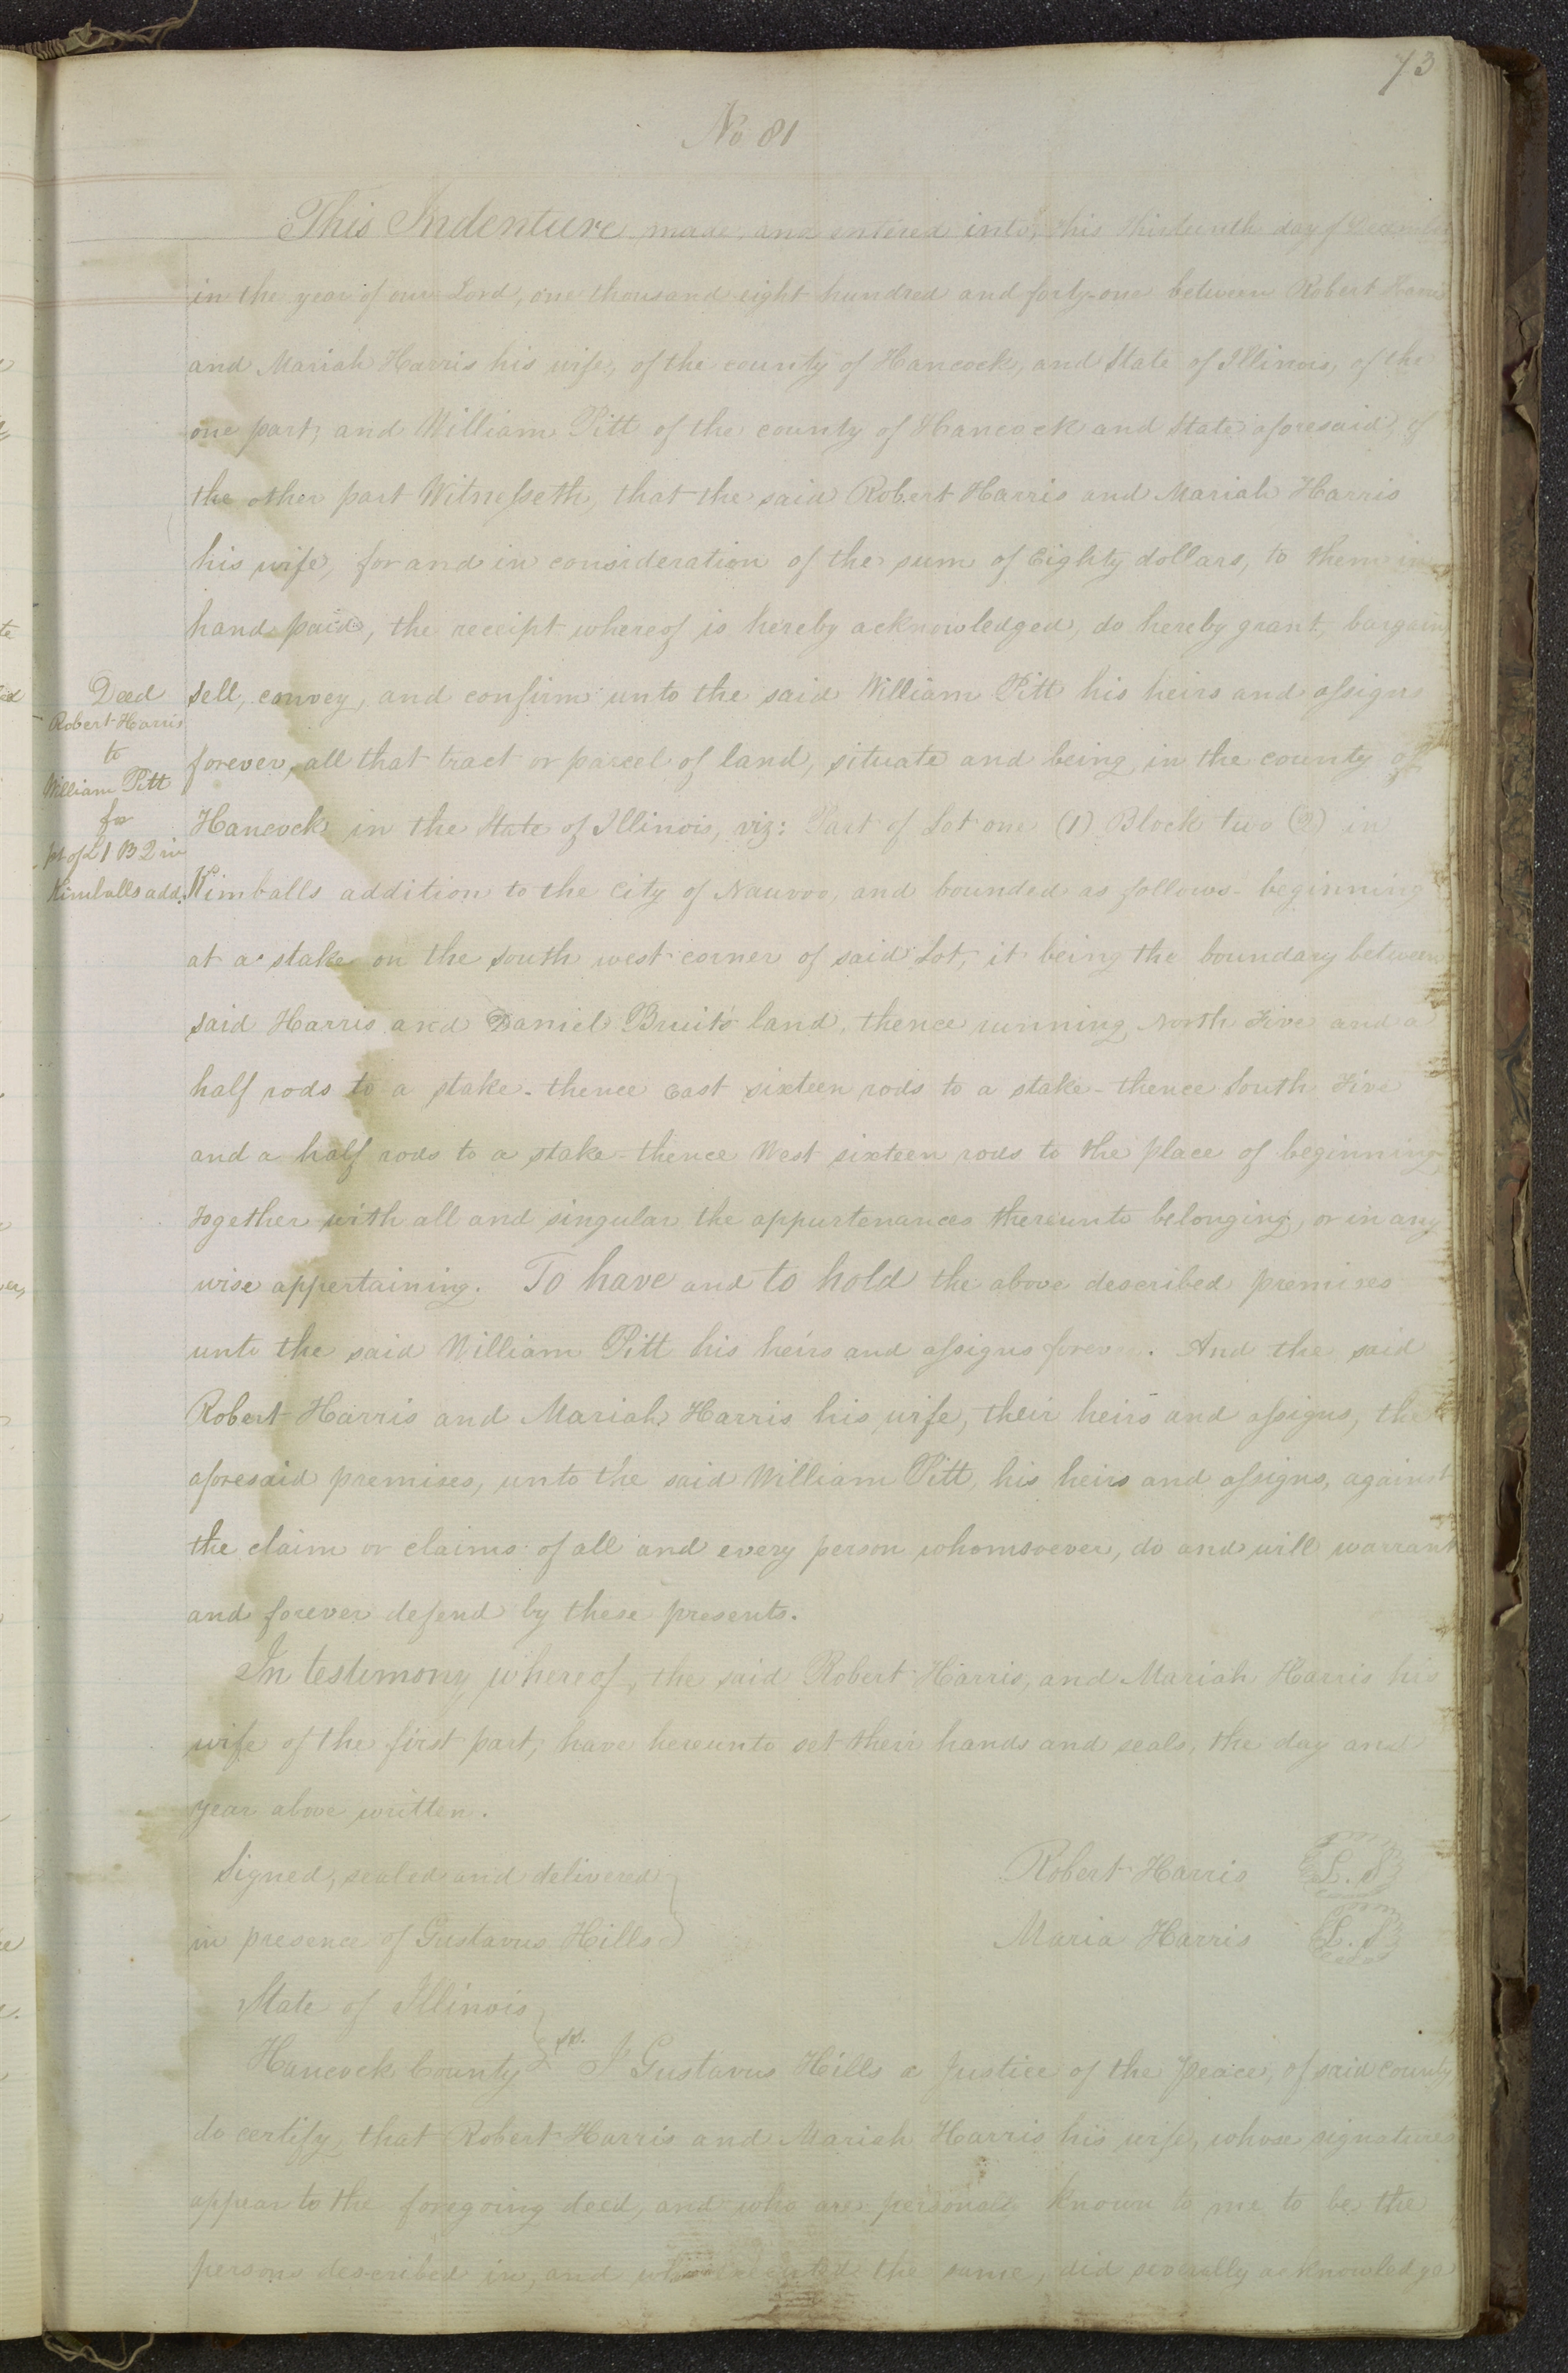 73
No 81
This Indenture made and entered into, this thirteenth day of December
in the year of our Lord, one thousand eight hundred and forty-one between Robert Harris
and Mariah Harris his wife, of the county of Hancock, and State of Illinois, of the
one part, and William Pitt of the county of Hancock and State aforesaid, of
the other part Witnesseth, that the said Robert Harris and Mariah Harris
his wife, for and in consideration of the sum of Eighty dollars, to them in
hand paid, the receipt whereof is hereby acknowledged, do hereby grant, bargain
sell, convey, and confirm unto the said William Pitt his heirs and assigns
forever, all that tract or parcel of land, situate and being in the county of
Hancock in the State of Illinois, viz: Part of Lot one (1) Block two (2) in
Kimballs addition to the City of Nauvoo, and bounded as follows- beginning
at a stake on the south west corner of said Lot, it being the boundary between
said Harris and Daniel Bruits land, thence running North Five and a
half rods to a stake - thence East sixteen rods to a stake - thence South Five
and a half rods to a stake - thence West sixteen rods to the place of beginning
together with all and singular the appurtenances thereunto belonging, or in any
wise appertaining. To have and to hold the above described premises
unto the said William Pitt his heirs and assigns forev. And the said
Robert Harris and Mariah Harris his wife, their heirs and assigns, the
aforesaid premises, unto the said William Pitt, his heirs and assigns, against
the claim or claims of all and every person whomsoever, do and will warrant
and forever defend by these presents.
In testimony whereof, the said Robert Harris, and Mariah Harris his
wife of the first part, have hereunto set their hands and seals, the day and
year above written.
Signed, sealed and delivered
in presence of Gustavus Hills
Robert Harris L.S
Maria Harris L.S
State of Illinois
Hancock County } ss. I Gustavus Hills a Justice of the Peace, of said county
do certify, that Robert Harris and Mariah Harris his wife, whose signatures
appear to the foregoing deed, and who are personally known to me to be the
persons described in, and who executed the same, did severally acknowledge
Deed
Robert Harris
to
William Pitt
for
pt of L 1 B 2 in
Kimballs add.